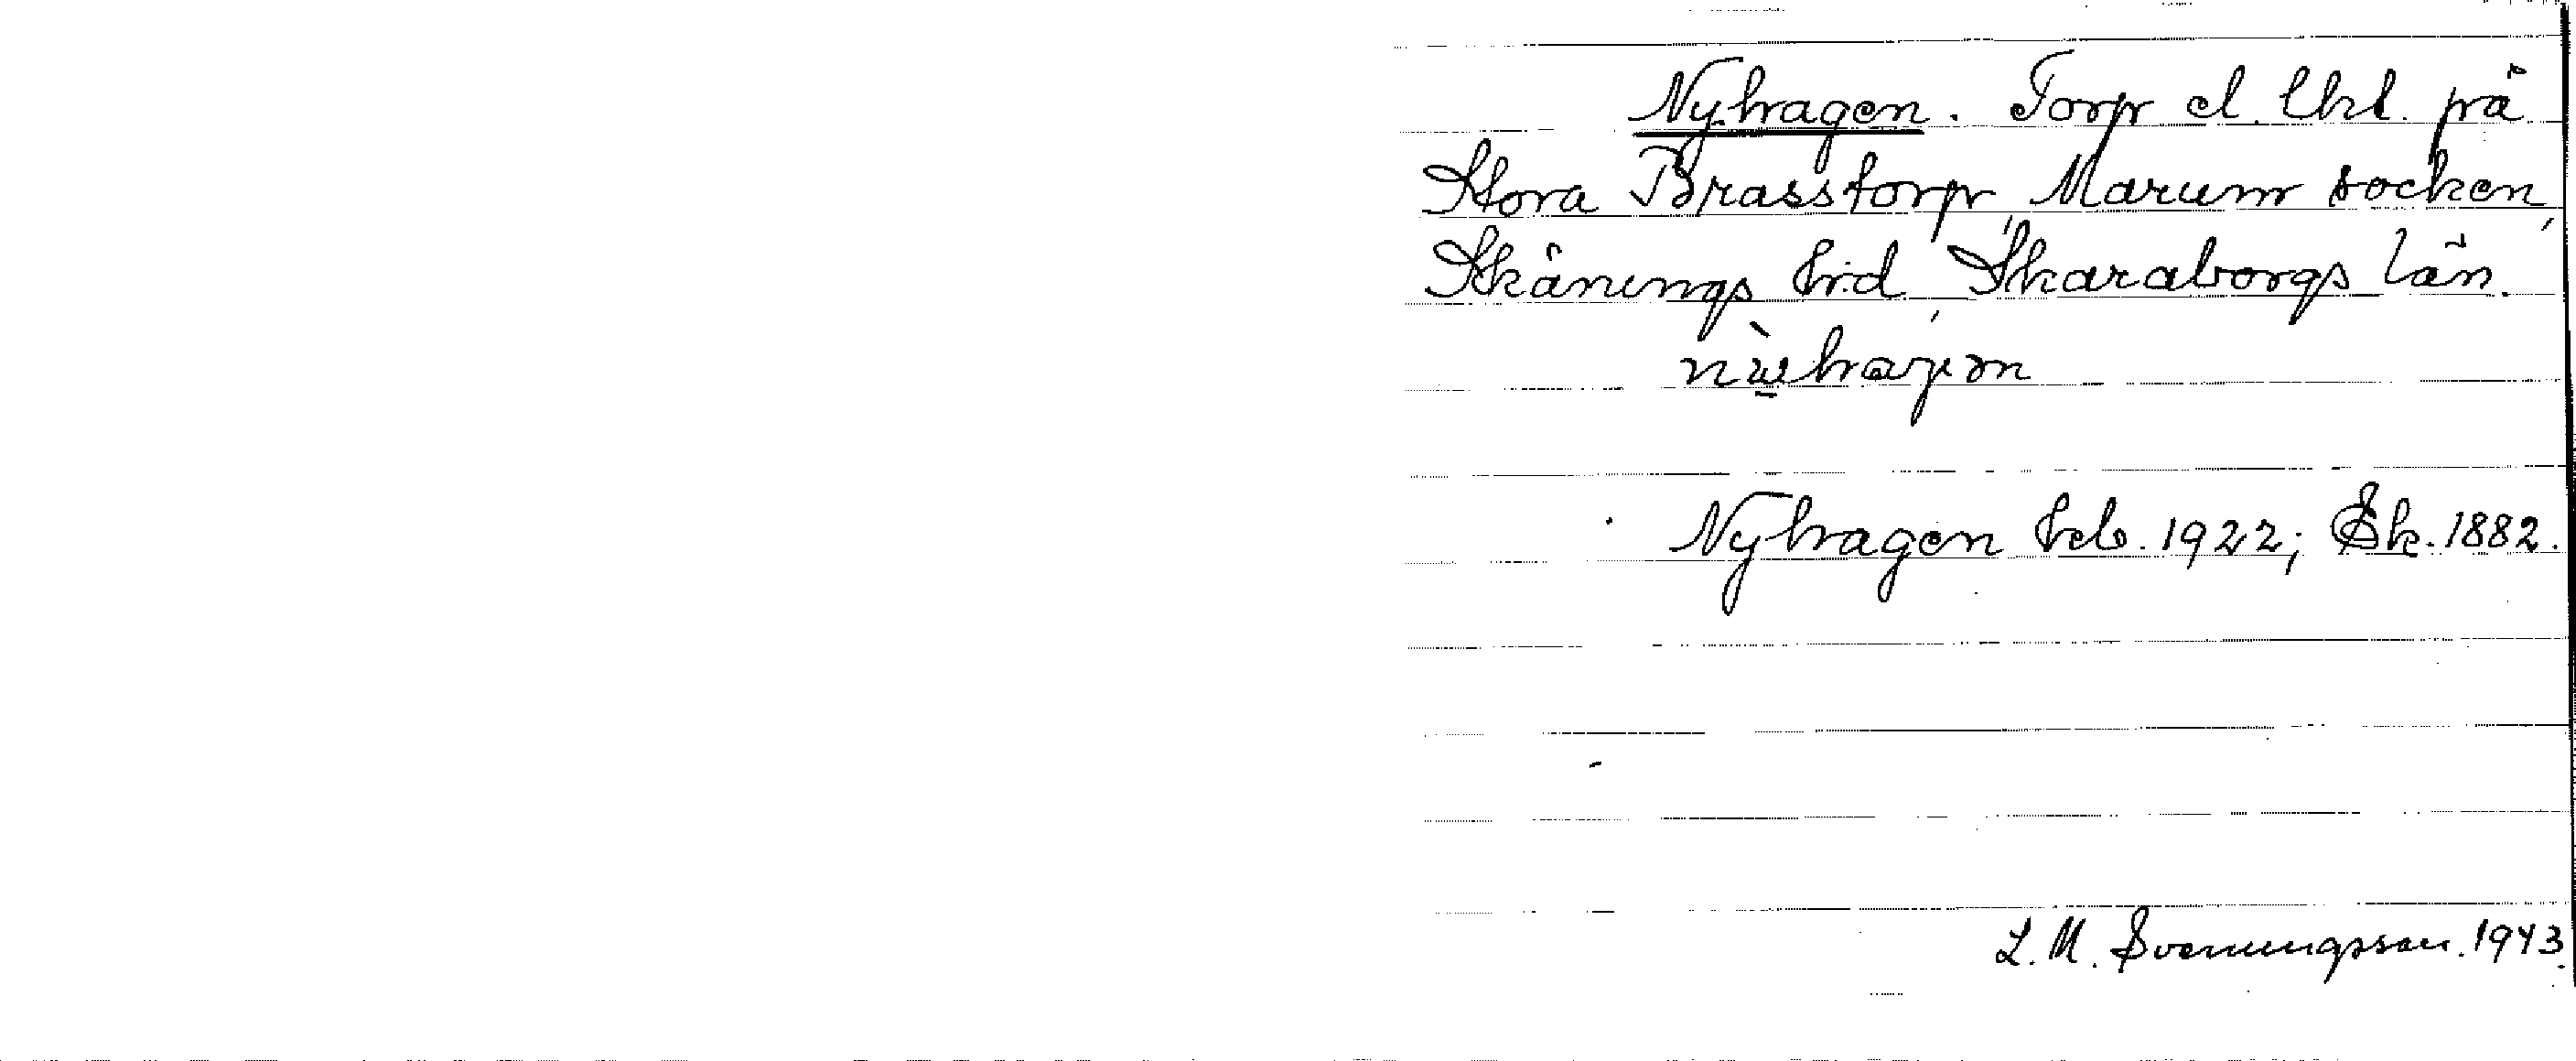 Nyhagen. Torp el. lht. på
Stora Brasstorp, Marum socken,
Skånings hd, Skaraborgs län.
Nyhagen hcb. 1922; Ek. 1882.
L. M. Svenungsson. 1943.